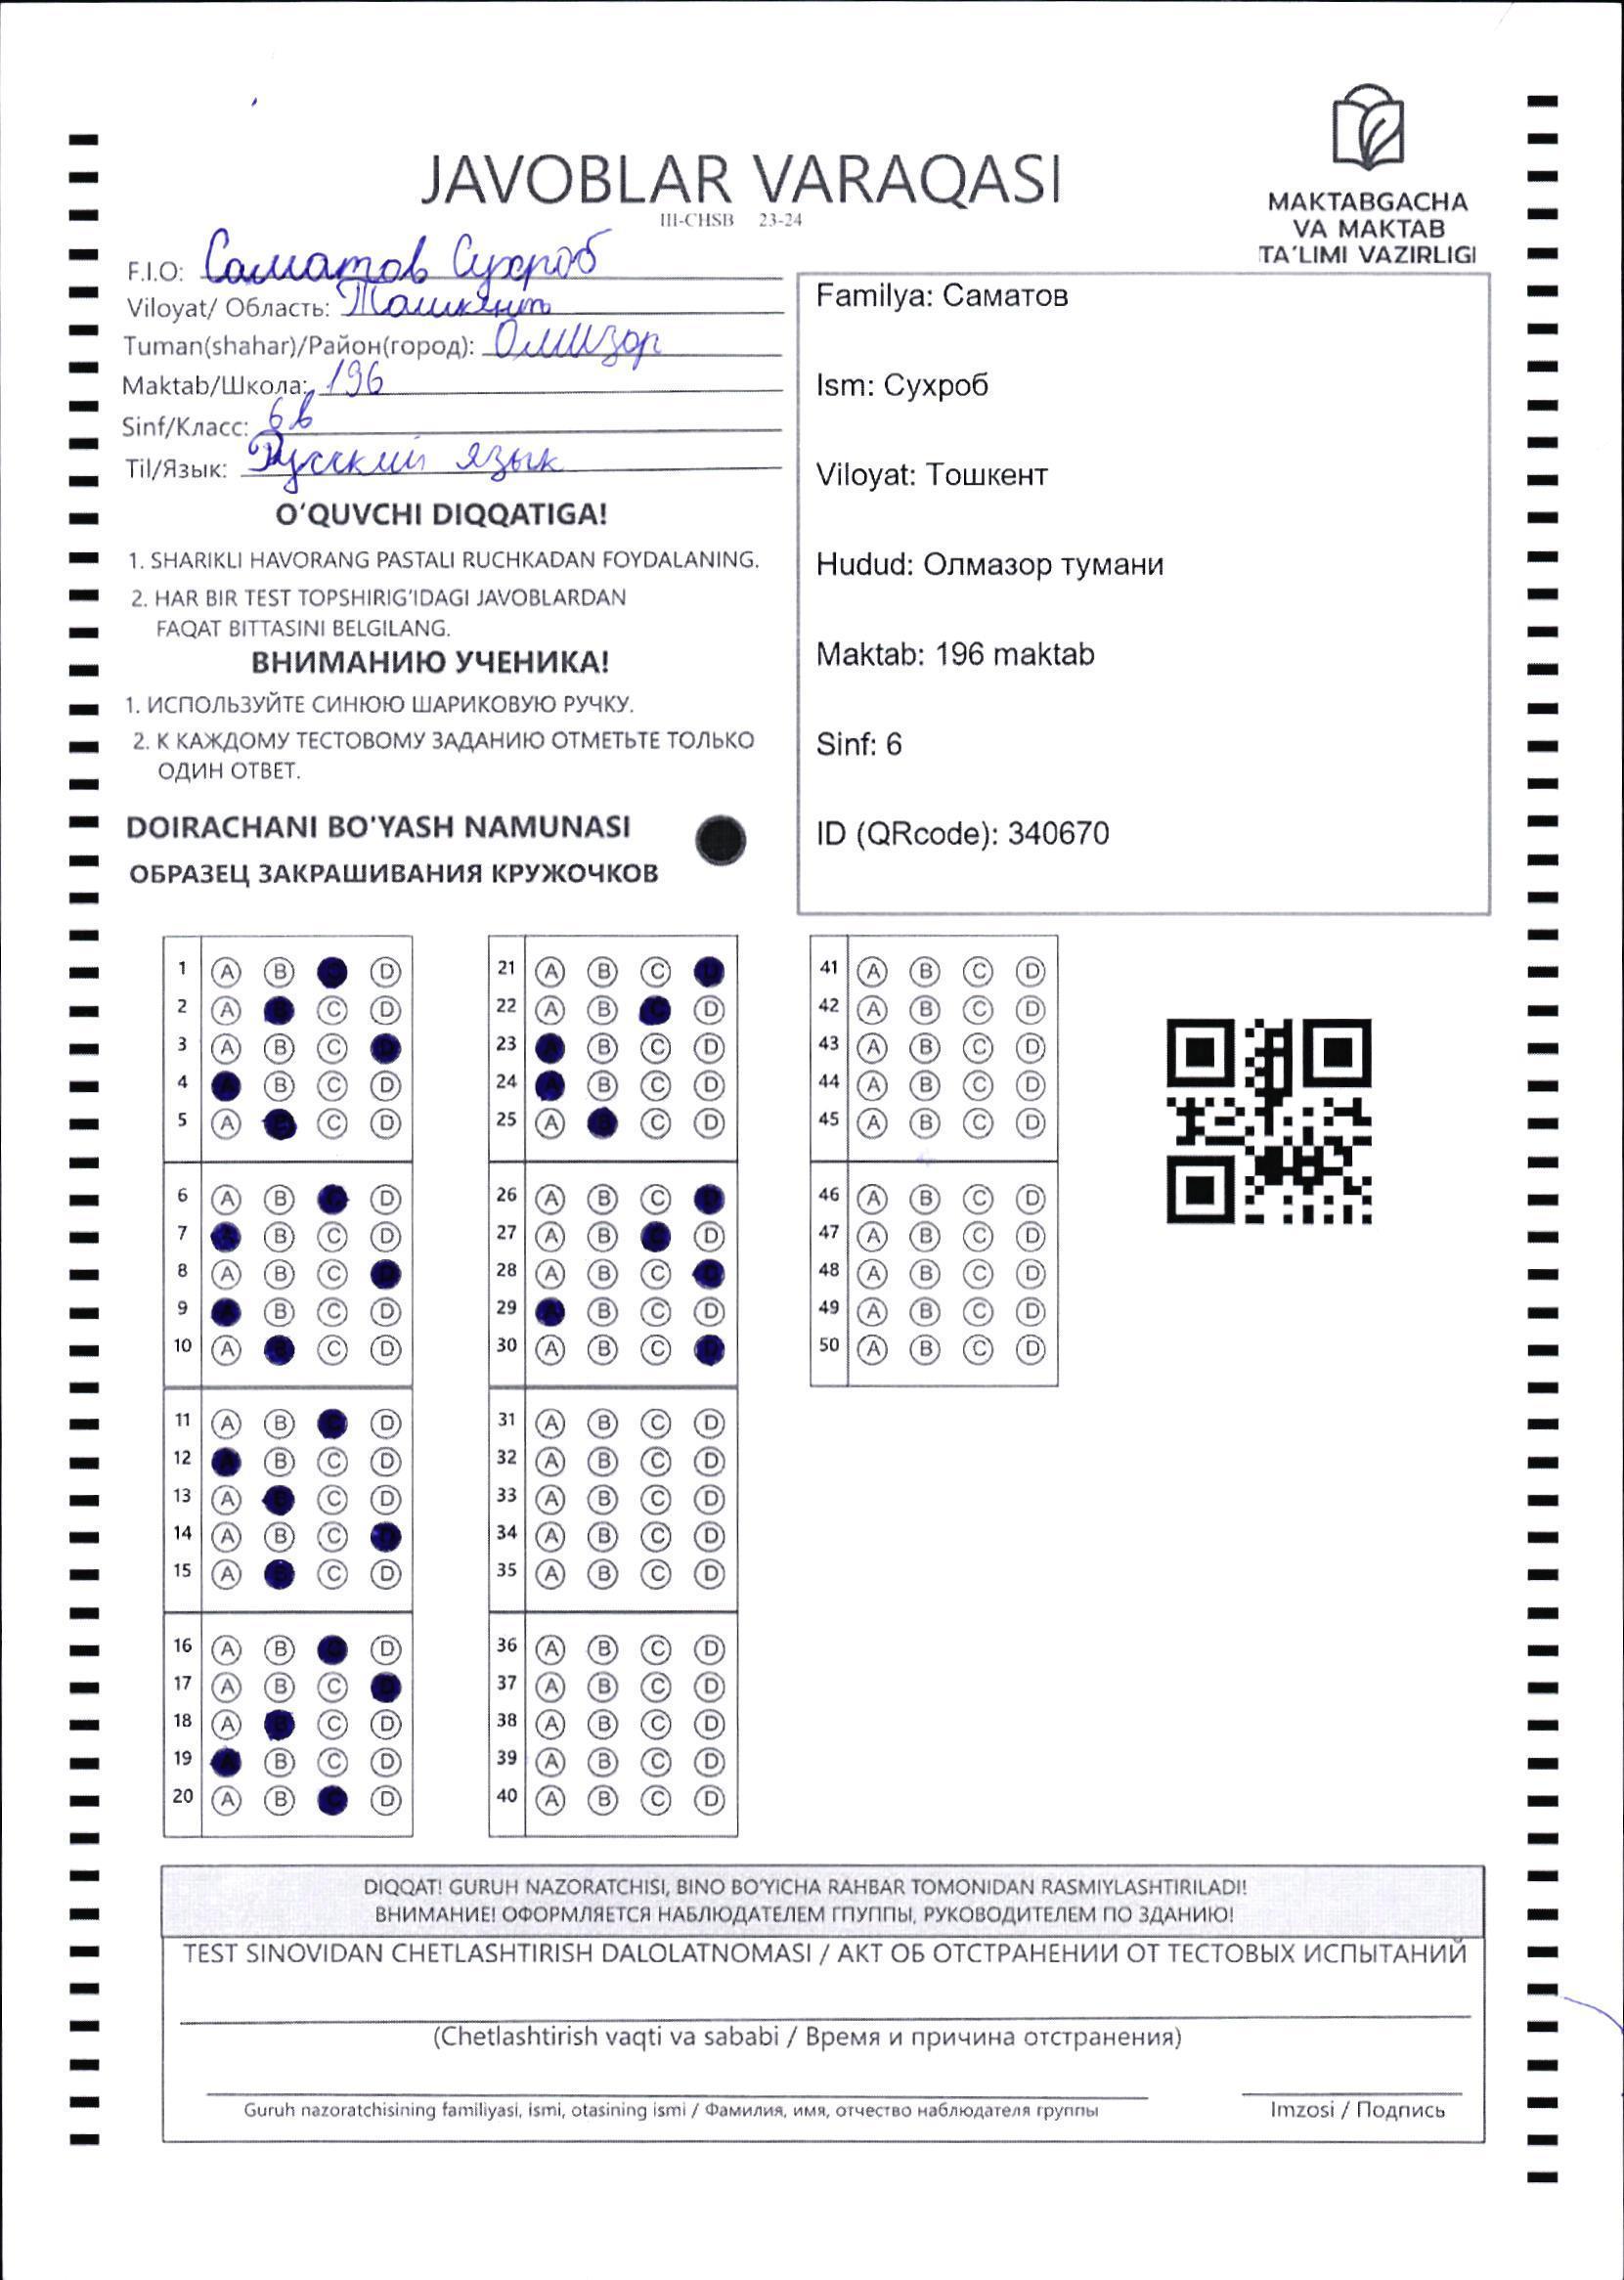 JAVOBLAR VARAQASI
III-CHSB 23-24
MAKTABGACHA
VA MAKTAB
TA'LIMI VAZIRLIGI
F.I.O: Саматов Сухроб
Viloyat/ Область: Ташкент
Tuman(shahar)/Район(город): Олмазор
Maktab/Школа: 196
Sinf/Класс: 6в
Til/Язык: Русский язык
O'QUVCHI DIQQATIGA!
1. SHARIKLI HAVORANG PASTALI RUCHKADAN FOYDALANING.
2. HAR BIR TEST TOPSHIRIG'IDAGI JAVOBLARDAN
FAQAT BITTASINI BELGILANG.
ВНИМАНИЮ УЧЕНИКА!
1. ИСПОЛЬЗУЙТЕ СИНЮЮ ШАРИКОВУЮ РУЧКУ.
2. К КАЖДОМУ ТЕСТОВОМУ ЗАДАНИЮ ОТМЕТЬТЕ ТОЛЬКО
ОДИН ОТВЕТ.
DOIRACHANI BO'YASH NAMUNASI
ОБРАЗЕЦ ЗАКРАШИВАНИЯ КРУЖОЧКОВ
Familya: Саматов
Ism: Сухроб
Viloyat: Тошкент
Hudud: Олмазор тумани
Maktab: 196 maktab
Sinf: 6
ID (QRcode): 340670
1 A B C D
2 A B C D
3 A B C D
4 A B C D
5 A B C D
6 A B C D
7 A B C D
8 A B C D
9 A B C D
10 A B C D
11 A B C D
12 A B C D
13 A B C D
14 A B C D
15 A B C D
16 A B C D
17 A B C D
18 A B C D
19 A B C D
20 A B C D
21 A B C D
22 A B C D
23 A B C D
24 A B C D
25 A B C D
26 A B C D
27 A B C D
28 A B C D
29 A B C D
30 A B C D
31 A B C D
32 A B C D
33 A B C D
34 A B C D
35 A B C D
36 A B C D
37 A B C D
38 A B C D
39 A B C D
40 A B C D
41 A B C D
42 A B C D
43 A B C D
44 A B C D
45 A B C D
46 A B C D
47 A B C D
48 A B C D
49 A B C D
50 A B C D
DIQQAT! GURUH NAZORATCHISI, BINO BO'YICHA RAHBAR TOMONIDAN RASMIYLASHTIRILADI!
ВНИМАНИЕ! ОФОРМЛЯЕТСЯ НАБЛЮДАТЕЛЕМ ГПУППЫ, РУКОВОДИТЕЛЕМ ПО ЗДАНИЮ!
TEST SINOVIDAN CHETLASHTIRISH DALOLATNOMASI / АКТ ОБ ОТСТРАНЕНИИ ОТ ТЕСТОВЫХ ИСПЫТАНИЙ
(Chetlashtirish vaqti va sababi / Время и причина отстранения)
Guruh nazoratchisining familiyasi, ismi, otasining ismi / Фамилия, имя, отчество наблюдателя группы
Imzosi / Подпись